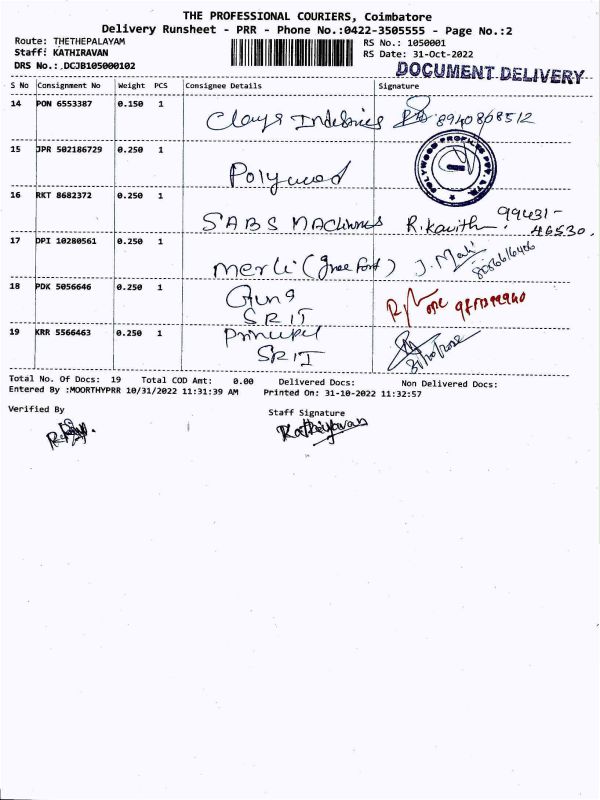 THE PROFESSIONAL COURIERS, Coimbatore
Delivery Runsheet - PRR - Phone No.:0422-3505555 - Page No.:2
Route: THETHEPALAYAM
RS No.: 1050001
Staff: KATHIRAVAN
RS Date: 31-Oct-2022
DRS No.: DCJB105000102
DOCUMENT DELIVERY
S No Consignment No Weight PCS Consignee Details Signature
14 PON 6553387 0.150 1
8940808512
15 JPR 502186729 0.250 1 Polywood
POLYWOOD PROFILES PVT LTD.
16 RKT 8682372 0.250 1 SABS Machines R.kavitha 99431-
46530.
17 DPI 10280561 0.250 1 Merli
18 PDK 5056646 0.250 1
SRIT
19 KRR 5566463 0.250 1 Principal
SRIT 31/10/2022
Total No. Of Docs: 19 Total COD Amt: 0.00 Delivered Docs: Non Delivered Docs:
Entered By :MOORTHYPRR 10/31/2022 11:31:39 AM Printed On: 31-10-2022 11:32:57
Verified By Staff Signature
Kathiravan